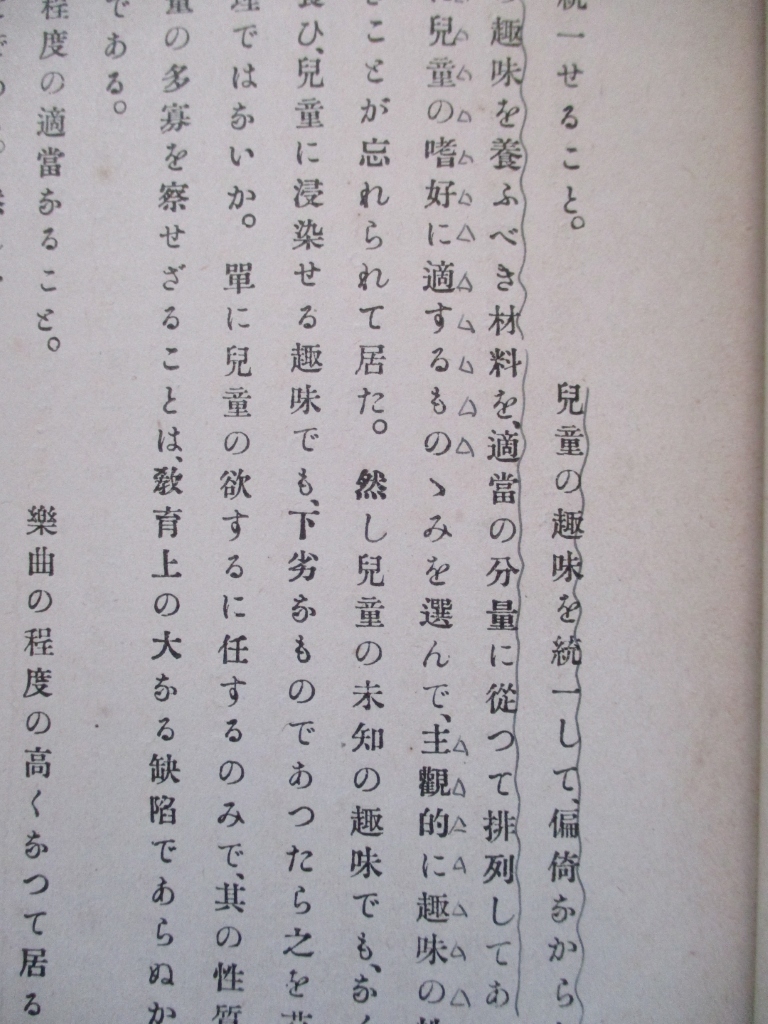 統一せること。　兒童の趣味を統一して、偏倚なから
趣味を養ふべき材料を、適當の分量に從つて排列してあ
兒童の嗜好に適するものゝみを選んで、主觀的に趣味の
ことが忘れられて居た。然し兒童の未知の趣味でも、なく
ひ、兒童に浸染せる趣味でも、下劣なものであつたら之を
ではないか。單に兒童の欲するに任するのみで、其の性質
量の多寡を察せざることは、教育上の大なる缺陷であらぬか
である。
程度の適當なること。　樂曲の程度の高くなつて居る